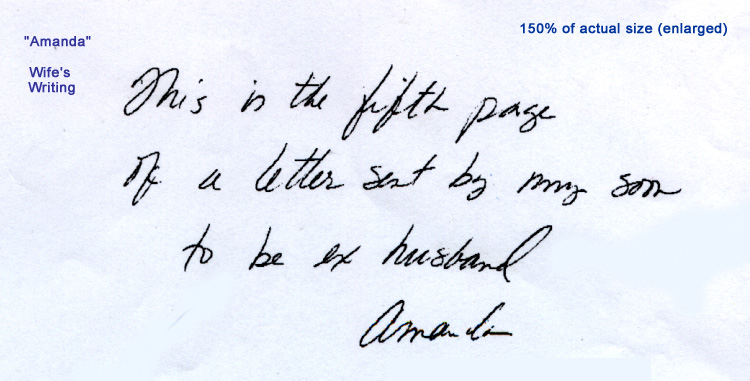 "Amanda"
150% of actual size (enlarged)
Wife's
Writing
This is the fifth page
of a letter sent by my soon
to be ex husband
Amanda